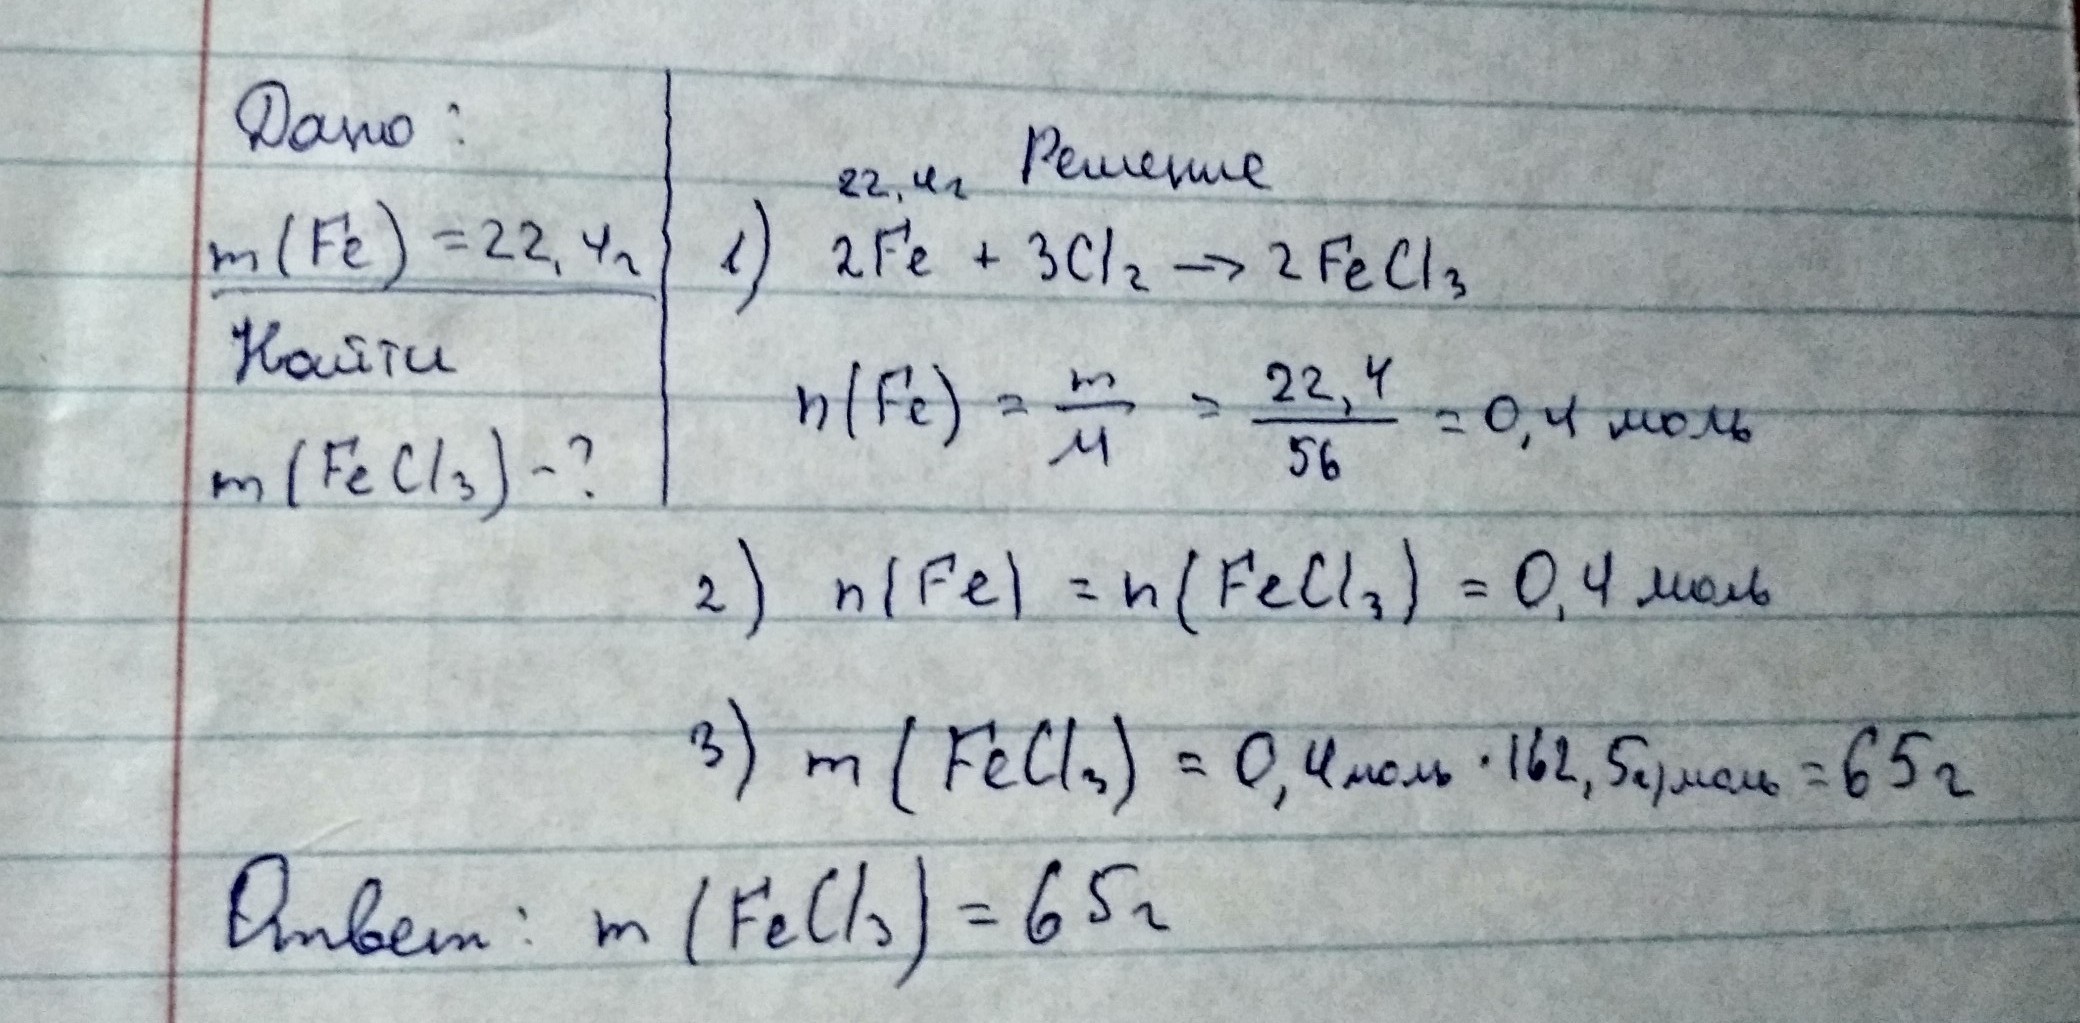 Дано:
m(Fe) = 22,4г
Найти
m(FeCl₃) - ?
Решение
22,4г
1) 2Fe + 3Cl₂ → 2FeCl₃
n(Fe) = m/M = 22,4/56 = 0,4 моль
2) n(Fe) = n(FeCl₃) = 0,4 моль
3) m(FeCl₃) = 0,4моль · 162,5г/моль = 65г
Ответ: m(FeCl₃) = 65г